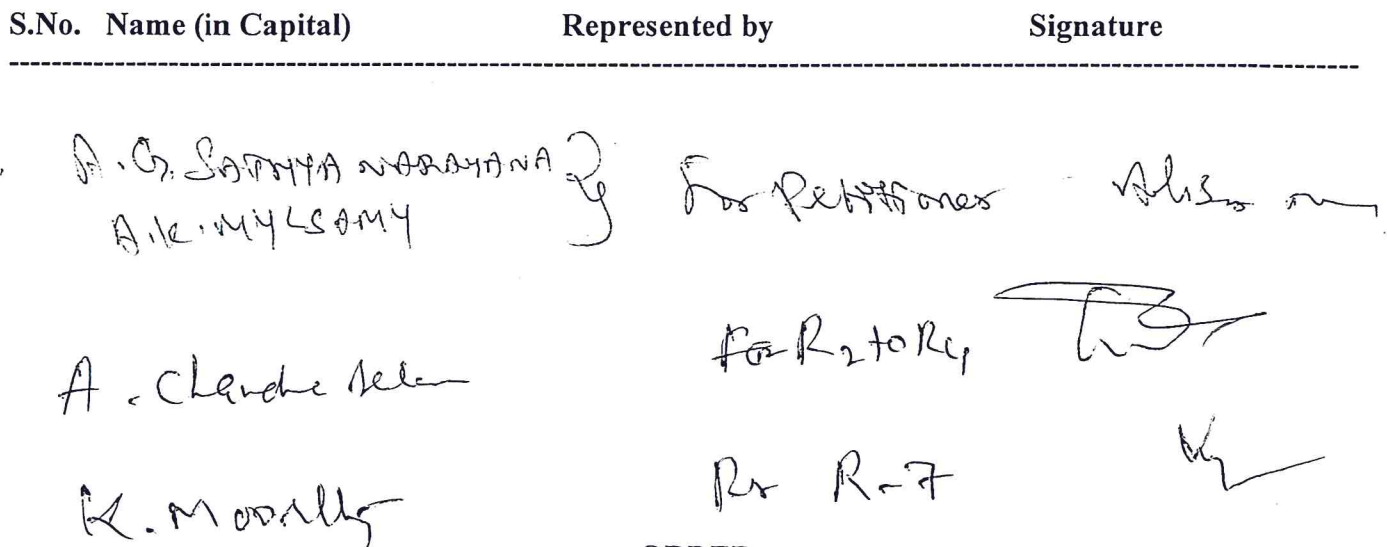 S.No. Name (in Capital) Represented by Signature
A.G. SATHYA NARAYANA
A.K. MYLSAMY
For Petitioner
A. Chandra
For R2 to R4
K. Moorthy
For R-7